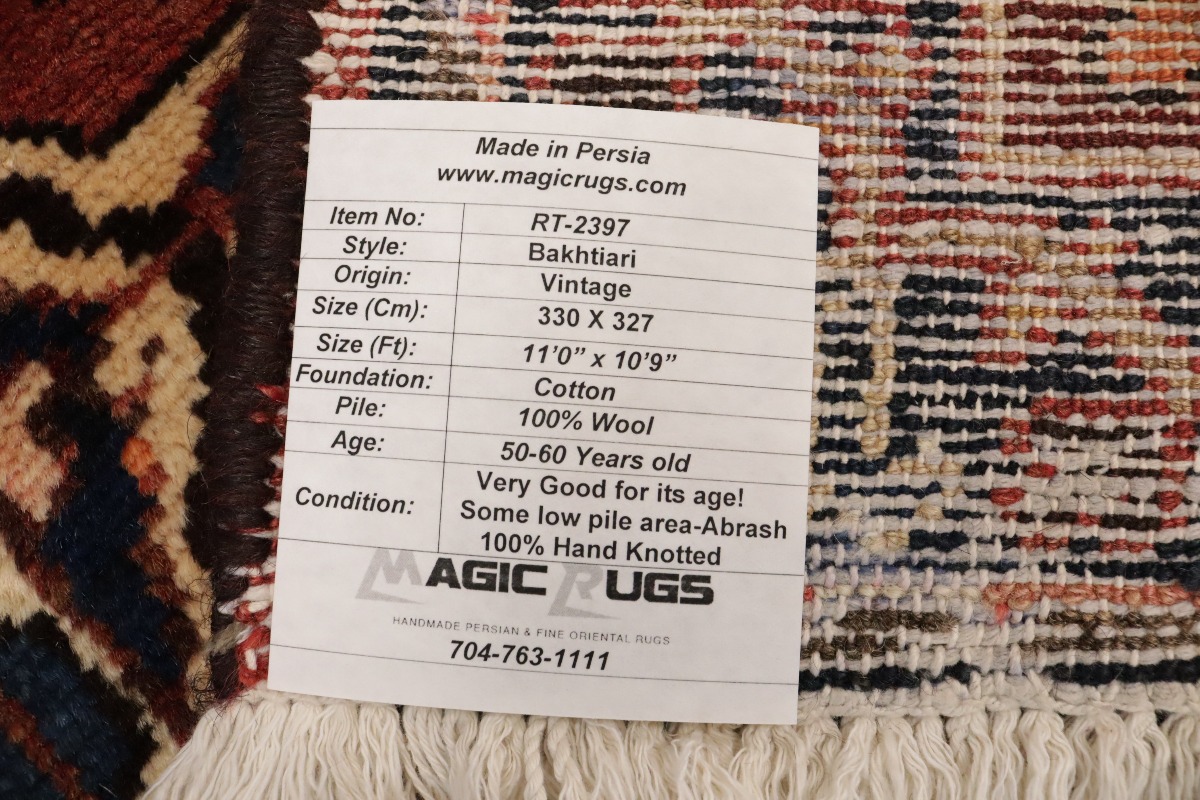 Made in Persia
www.magicrugs.com
Item No: RT-2397
Style: Bakhtiari
Origin: Vintage
Size (Cm): 330 X 327
Size (Ft): 11’0” x 10’9”
Foundation: Cotton
Pile: 100% Wool
Age: 50-60 Years old
Condition: Very Good for its age!
Some low pile area-Abrash
100% Hand Knotted
MAGIC RUGS
HANDMADE PERSIAN & FINE ORIENTAL RUGS
704-763-1111